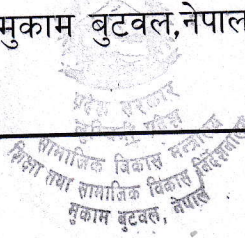 मुकाम बुटवल,नेपाल
प्रदेश सरकार
लुम्बिनी प्रदेश
सामाजिक विकास मन्त्रालय
शिक्षा तथा सामाजिक विकास निर्देशनालय
मुकाम बुटवल, नेपाल